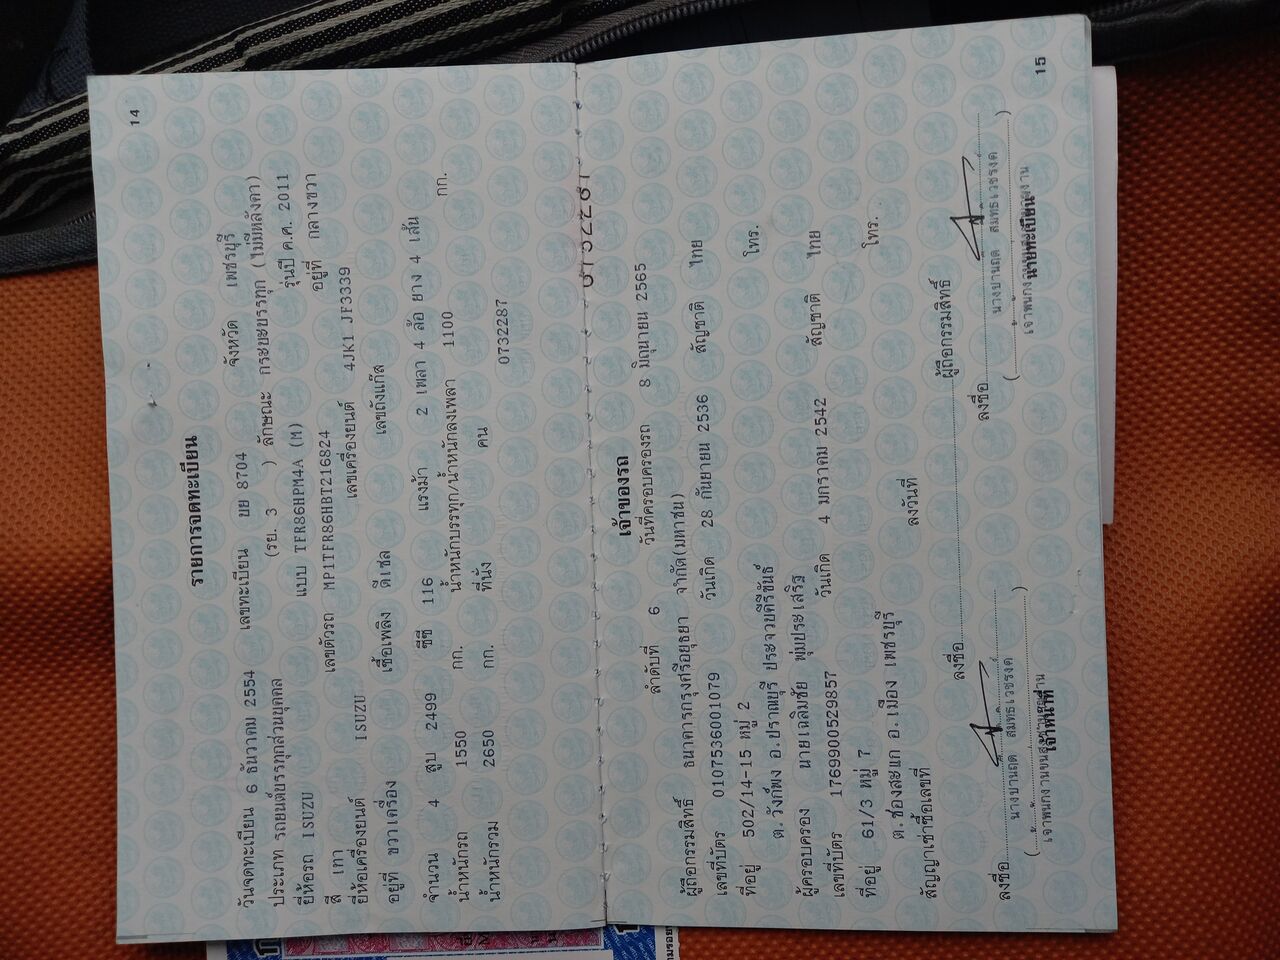 14
รายการจดทะเบียน
วันจดทะเบียน 6 ธันวาคม 2554 เลขทะเบียน บย 8704 จังหวัด เพชรบุรี
ประเภท รถยนต์บรรทุกส่วนบุคคล (รย. 3 ) ลักษณะ กระบะบรรทุก (ไม่มีหลังคา)
ยี่ห้อรถ ISUZU แบบ TFR86HPM4A (M) รุ่นปี ค.ศ. 2011
สี เทา เลขตัวรถ MP1TFR86HBT216824 อยู่ที่ กลางขวา
ยี่ห้อเครื่องยนต์ ISUZU เลขเครื่องยนต์ 4JK1 JF3339
อยู่ที่ ขวาเครื่อง เชื้อเพลิง ดีเซล เลขถังแก๊ส
จำนวน 4 สูบ 2499 ซีซี 116 แรงม้า 2 เพลา 4 ล้อ ยาง 4 เส้น
น้ำหนักรถ 1550 กก. น้ำหนักบรรทุก/น้ำหนักลงเพลา 1100 กก.
น้ำหนักรวม 2650 กก. ที่นั่ง คน 0732287
เจ้าของรถ
ลำดับที่ 6 วันที่ครอบครองรถ 8 มิถุนายน 2565
ผู้ถือกรรมสิทธิ์ ธนาคารกรุงศรีอยุธยา จำกัด(มหาชน)
เลขที่บัตร 0107536001079 วันเกิด 28 กันยายน 2536 สัญชาติ ไทย
ที่อยู่ 502/14-15 หมู่ 2 โทร.
ต.วังก์พง อ.ปราณบุรี ประจวบคีรีขันธ์
ผู้ครอบครอง นายเฉลิมชัย พุ่มประเสริฐ
เลขที่บัตร 1769900529857 วันเกิด 4 มกราคม 2542 สัญชาติ ไทย
ที่อยู่ 61/3 หมู่ 7 โทร.
ต.ช่องสะแก อ.เมือง เพชรบุรี
สัญญาเช่าซื้อเลขที่ ลงวันที่
ลงชื่อ ผู้ถือกรรมสิทธิ์
ลงชื่อ ลงชื่อ
เจ้าหน้าที่ นายทะเบียน
15